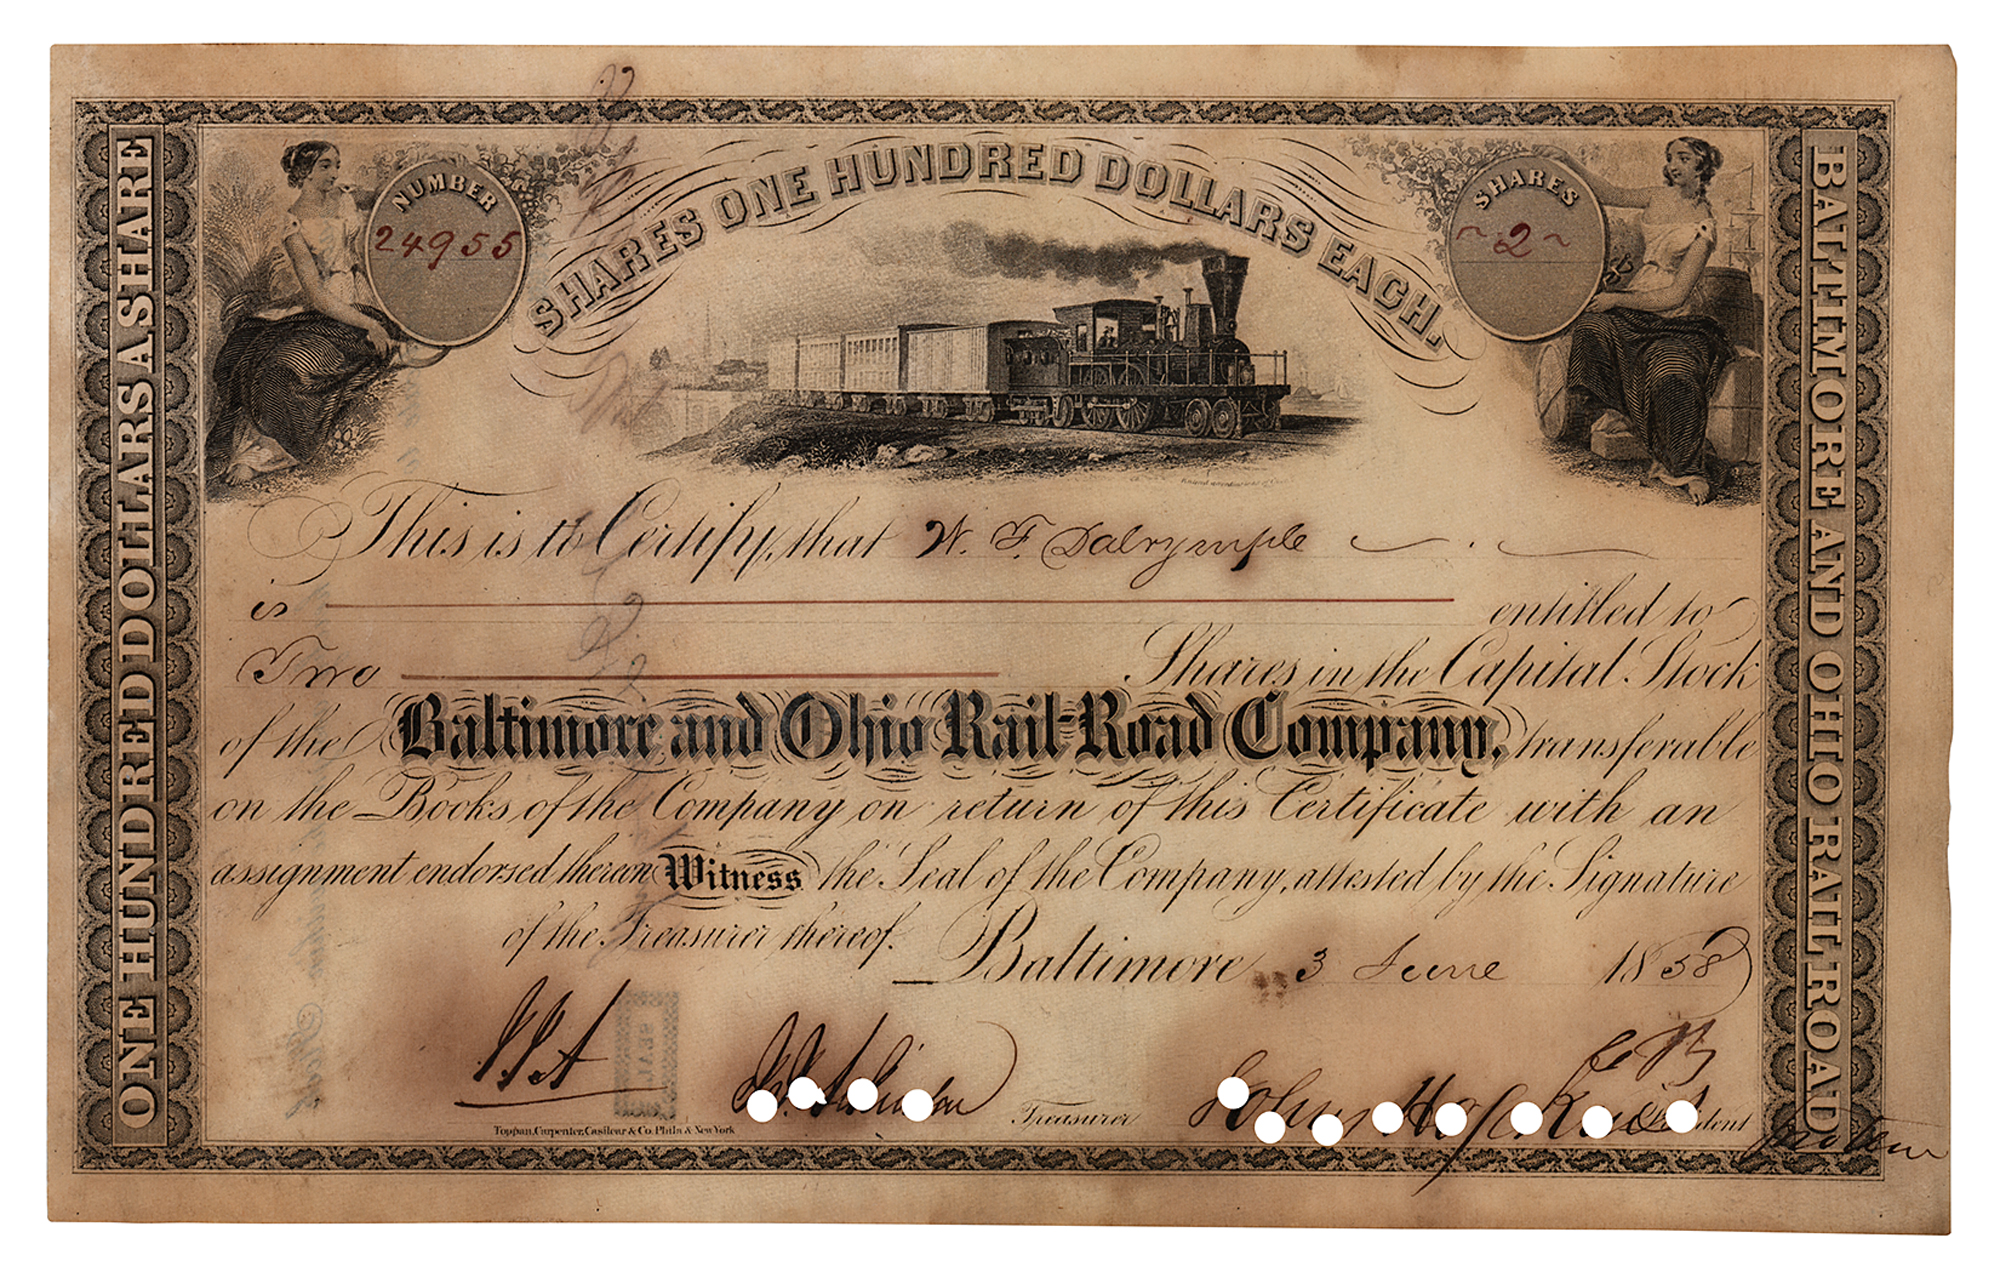 SHARES ONE HUNDRED DOLLARS EACH.
NUMBER
24955
SHARES
~2~
ONE HUNDRED DOLLARS A SHARE
BALTIMORE AND OHIO RAILROAD
This is to Certify, that W. F. Dalrymple
is entitled to
Two Shares in the Capital Stock
of the Baltimore and Ohio Rail-Road Company, transferable
on the Books of the Company on return of this Certificate with an
assignment endorsed thereon Witness the Seal of the Company, attested by the Signature
of the Treasurer thereof. Baltimore 3 June 1858
Treasurer
President pro tem
Toppan, Carpenter, Casilear & Co. Phila & New York